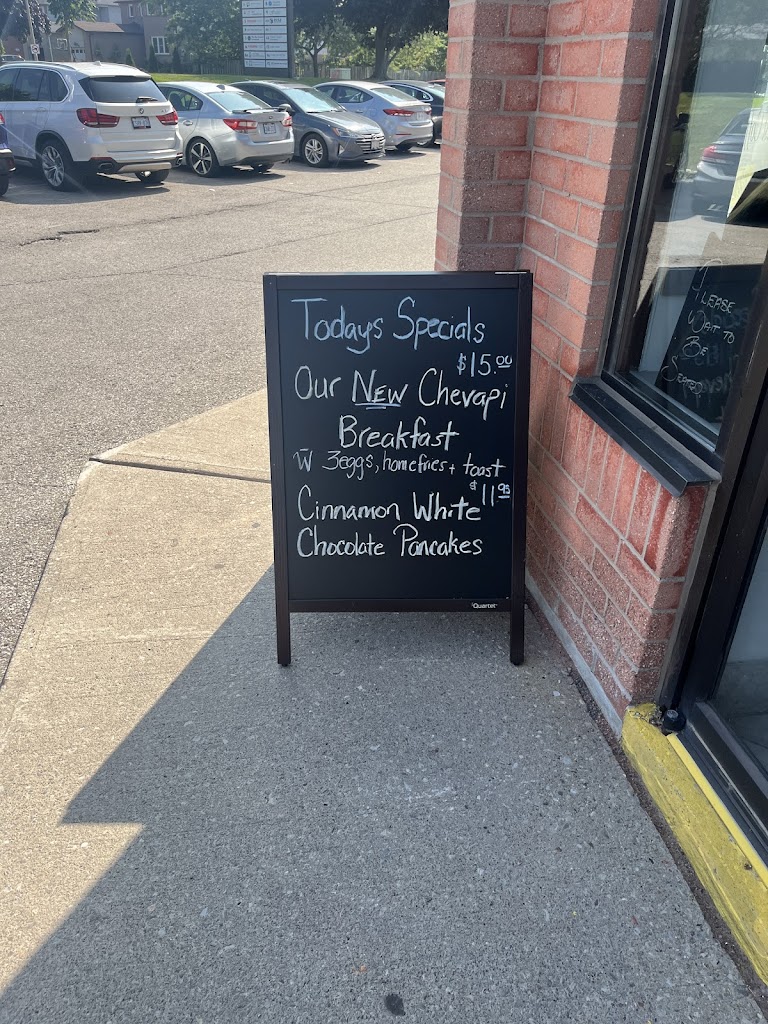 Todays Specials
$15.00
Our NEW Chevapi
Breakfast
W 3eggs, homefries + toast
$11.95
Cinnamon White
Chocolate Pancakes
Quartet
PLEASE
WAIT TO
BE
SEATED